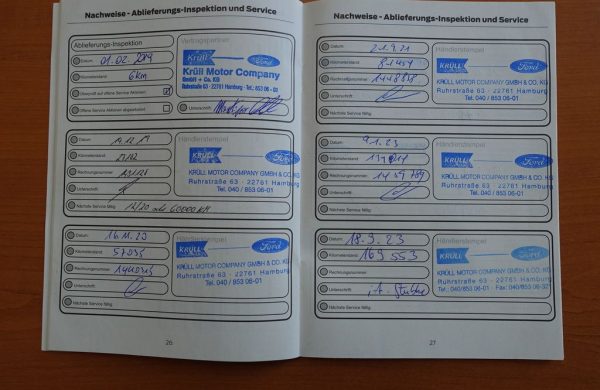 Nachweise - Ablieferungs-Inspektion und Service
Ablieferungs-Inspektion
Datum 01.02.2019
Kilometerstand 6km
Überprüft auf offene Service Aktionen
Offene Service Aktionen abgearbeitet
Unterschrift
Vertragspartner
KRÜLL Ford
Krüll Motor Company
GmbH + Co. KG
Ruhrstraße 63 · 22761 Hamburg · Tel.: 853 06-01
Datum 19.12.19
Kilometerstand
Rechnungsnummer
Unterschrift
Nächste Service fällig 12/20 oder 60000 KM
Händlerstempel
KRÜLL Ford
KRÜLL MOTOR COMPANY GMBH & CO. KG
Ruhrstraße 63 · 22761 Hamburg
Tel. 040 / 853 06-01
Datum
Kilometerstand
Rechnungsnummer
Unterschrift
Nächste Service fällig
Händlerstempel
KRÜLL Ford
KRÜLL MOTOR COMPANY GMBH & CO. KG
Ruhrstraße 63 · 22761 Hamburg
Tel. 040 / 853 06-01
26
Nachweise - Ablieferungs-Inspektion und Service
Datum 21.9.21
Kilometerstand
Rechnungsnummer
Unterschrift
Nächste Service fällig
Händlerstempel
KRÜLL Ford
KRÜLL MOTOR COMPANY GMBH & CO. KG
Ruhrstraße 63 · 22761 Hamburg
Tel. 040 / 853 06-01
Datum 9.1.23
Kilometerstand
Rechnungsnummer
Unterschrift
Nächste Service fällig
Händlerstempel
KRÜLL Ford
KRÜLL MOTOR COMPANY GMBH & CO. KG
Ruhrstraße 63 · 22761 Hamburg
Tel. 040 / 853 06-01
Datum 18.9.23
Kilometerstand 169 553
Rechnungsnummer
Unterschrift
Nächste Service fällig
Händlerstempel
KRÜLL Ford
KRÜLL MOTOR COMPANY GMBH & CO. KG
Ruhrstraße 63 · 22761 Hamburg
Tel. 040/853 06-01 · Fax: 040/853 06-32
27